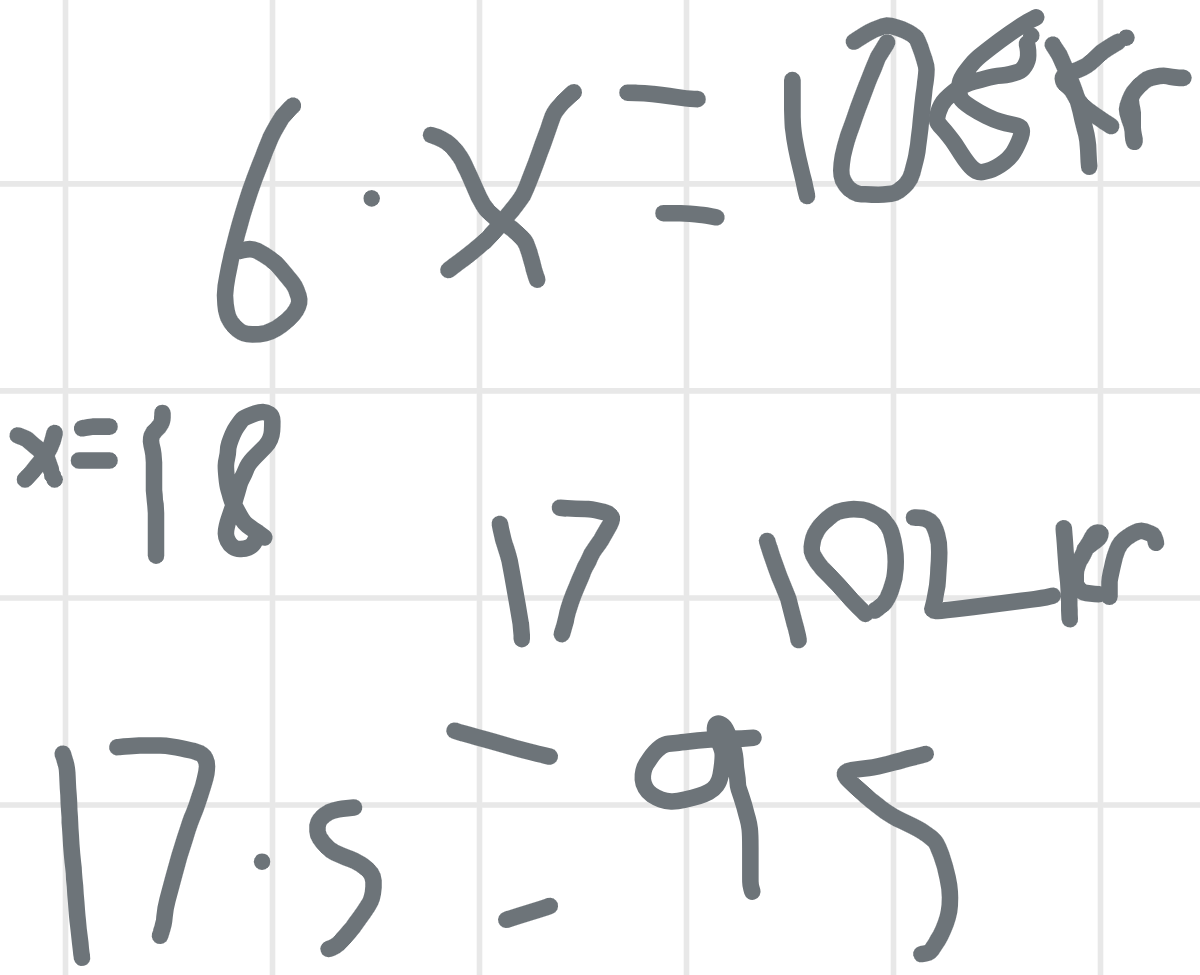 6 · x = 108kr
x=18
17 102kr
17 · 5 = 95